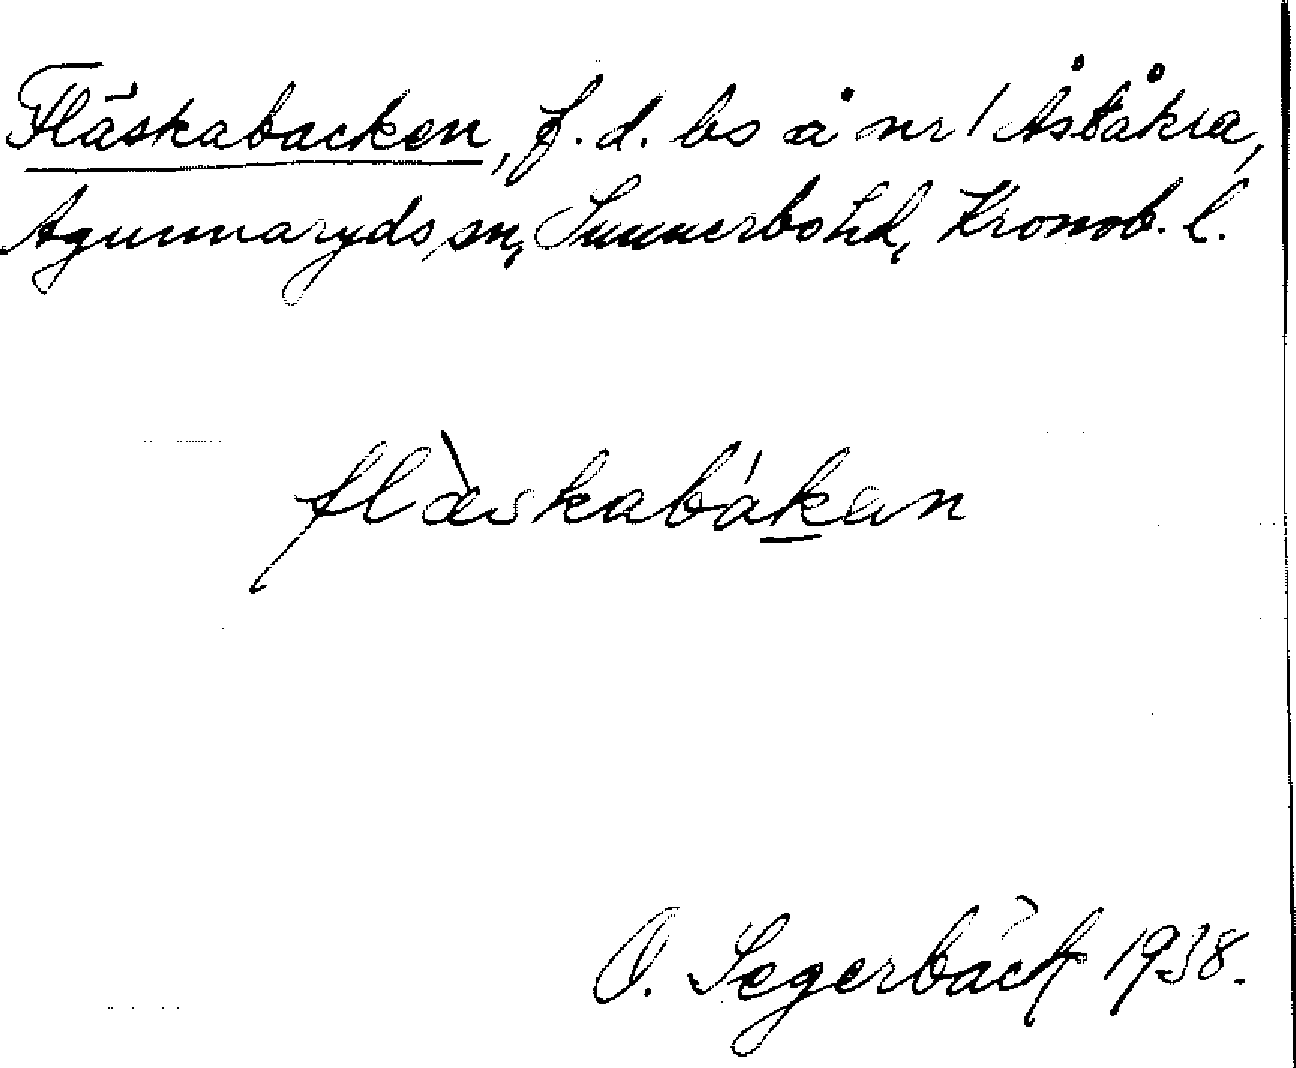 Fläskabacken, f.d. bs å nr 1 Åståkra,
Agunnaryds sn, Sunnerbo hd, Kronob. l.
flæ̀skabákan
O. Segerbäck 1938.